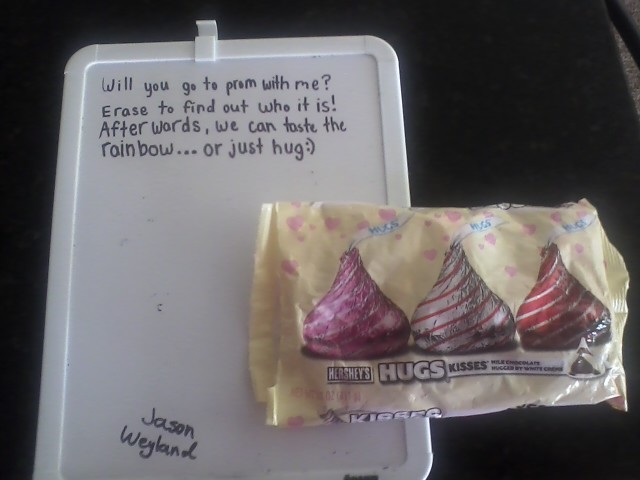 Will you go to prom with me?
Erase to find out who it is!
After words, we can taste the
rainbow... or just hug:)
Jason
Weyland
HUGS
HUGS
HUGS
HERSHEY'S HUGS KISSES MILK CHOCOLATE
HUGGED BY WHITE CREME
KISSES